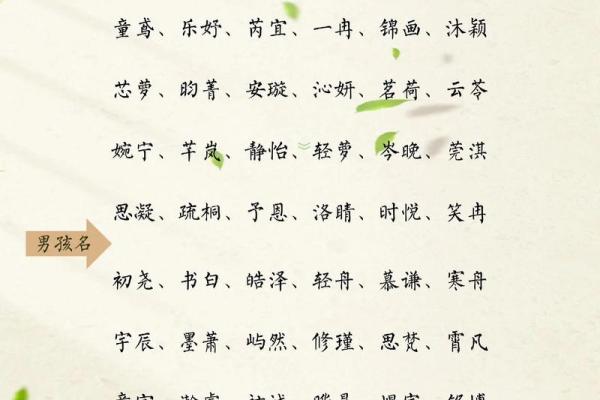 童鸢、乐妤、芮宜、一冉、锦画、沐颖
芯萝、昀菁、安璇、沁妍、茗荷、云苓
婉宁、芊岚、静怡、轻萝、岑晚、莞淇
思凝、疏桐、予恩、洛晴、时悦、笑冉
男孩名
初尧、书白、皓泽、轻舟、慕谦、寒舟
宇辰、墨萧、屿然、修瑾、思梵、霄凡